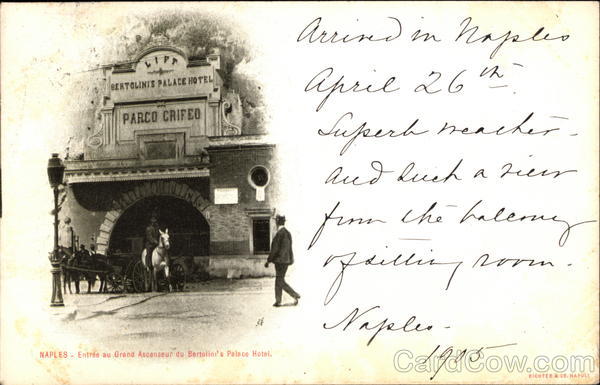 LIFT
BERTOLINI'S PALACE HOTEL
PARCO GRIFEO
Arrived in Naples
April 26th.
Superb weather-
and such a view
from the balcony
of sitting room.
Naples-
1905
NAPLES - Entrée au Grand Ascenseur du Bertolini's Palace Hotel.
RICHTER & CO. NAPOLI
CardCow.com